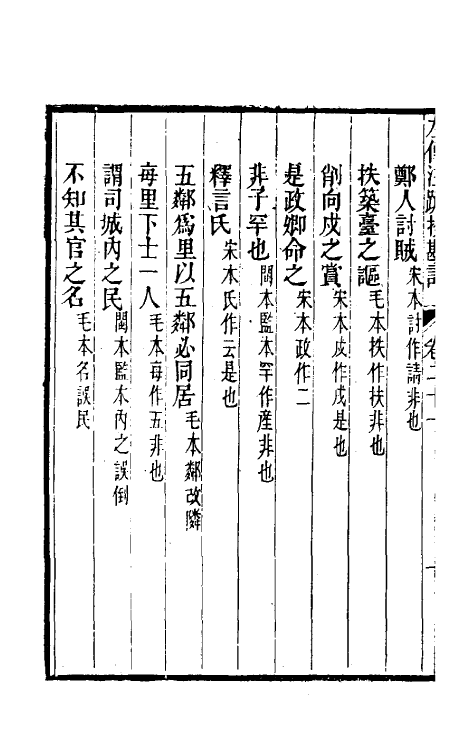 左傳注疏校勘記 卷二十一 十
鄭人討賊宋本討作請非也
抶築臺之謳毛本抶作扶非也
削向戍之賞宋本戍作戌是也
是政卿命之宋本政作二
非子罕也閩本監本罕作産非也
釋言氏宋本氏作云是也
五鄰爲里以五鄰必同居毛本鄰改隣
每里下士一人毛本每作五非也
謂司城內之民閩本監本內之誤倒
不知其官之名毛本名誤民